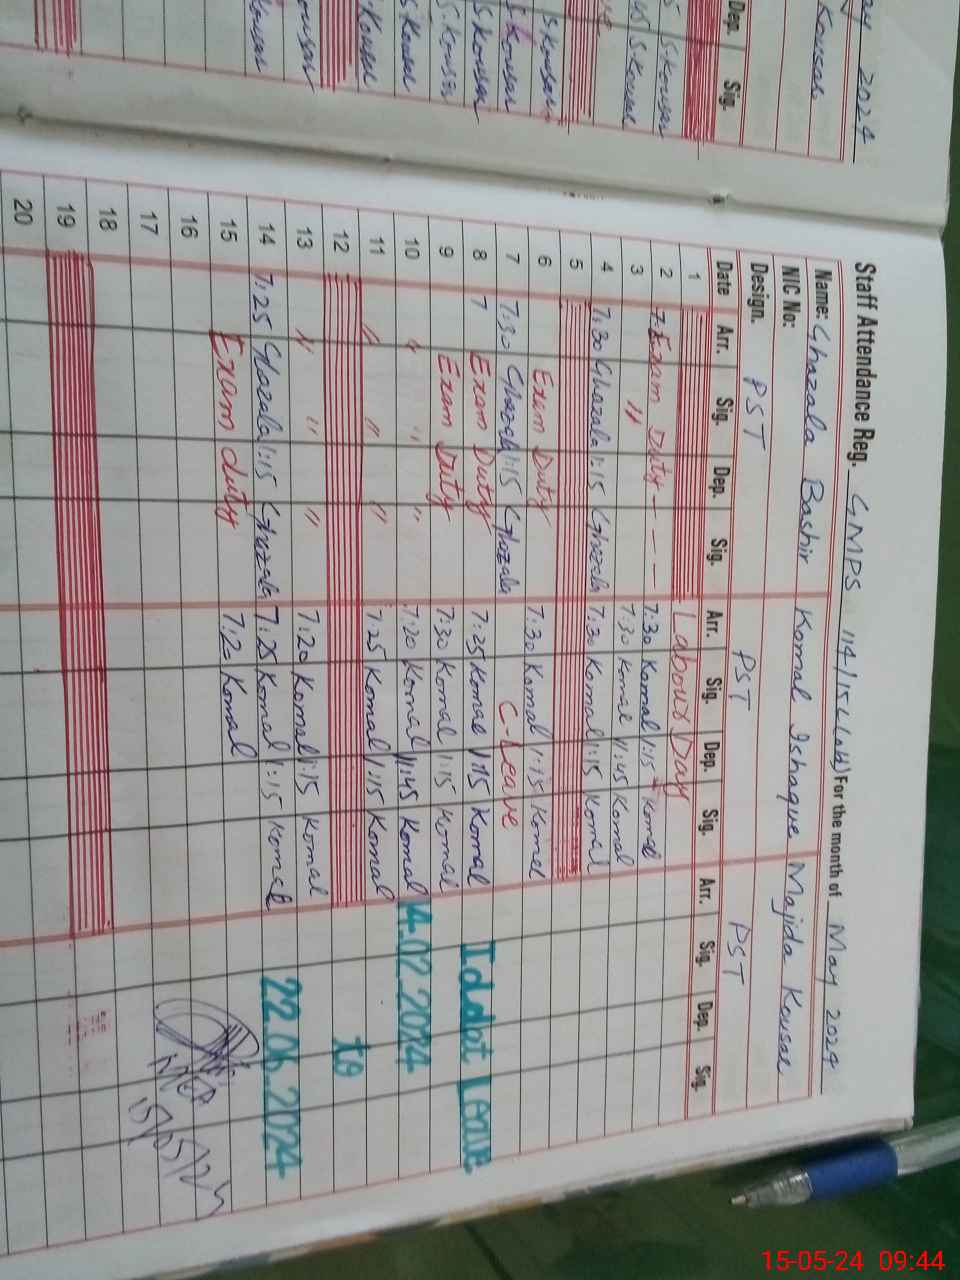 May 2024
Kousar
Dep. Sig.
S.Kousar
45 S.Kousar
S.Kousar
S.Kousar
S.Kousar
S.Kousar
S.Kousar
Kousar
Staff Attendance Reg. GMPS 114/15-L (Lab) For the month of May 2024
Name: Ghazala Bashir Komal Ishaque Majida Kousar
NIC No:
Design. PST PST PST
Date Arr. Sig. Dep. Sig. Arr. Sig. Dep. Sig. Arr. Sig. Dep. Sig.
1 Labour Day
2 Exam Duty - - - 7:30 Komal 1:15 Komal
3 " 7:30 Komal 11:45 Komal
4 7:30 Ghazala 1:15 Ghazala 7:30 Komal 1:15 Komal
5
6 Exam Duty 7:30 Komal 1:15 Komal
7 7:30 Ghazala 1:15 Ghazala C-Leave
8 7 Exam Duty 7:25 Komal 1:15 Komal Iddat Leave
9 Exam Duty 7:30 Komal 1:15 Komal
10 " " " 7:20 Komal 11:45 Komal 14.02.2024
11 " " " 7:25 Komal 1:15 Komal
12 to
13 " " " 7:20 Komal 1:15 Komal
14 7:25 Ghazala 1:15 Ghazala 7:25 Komal 1:15 Komal 22.06.2024
15 Exam duty 7:20 Komal
16
17 15/05/24
18
19
20
15-05-24 09:44